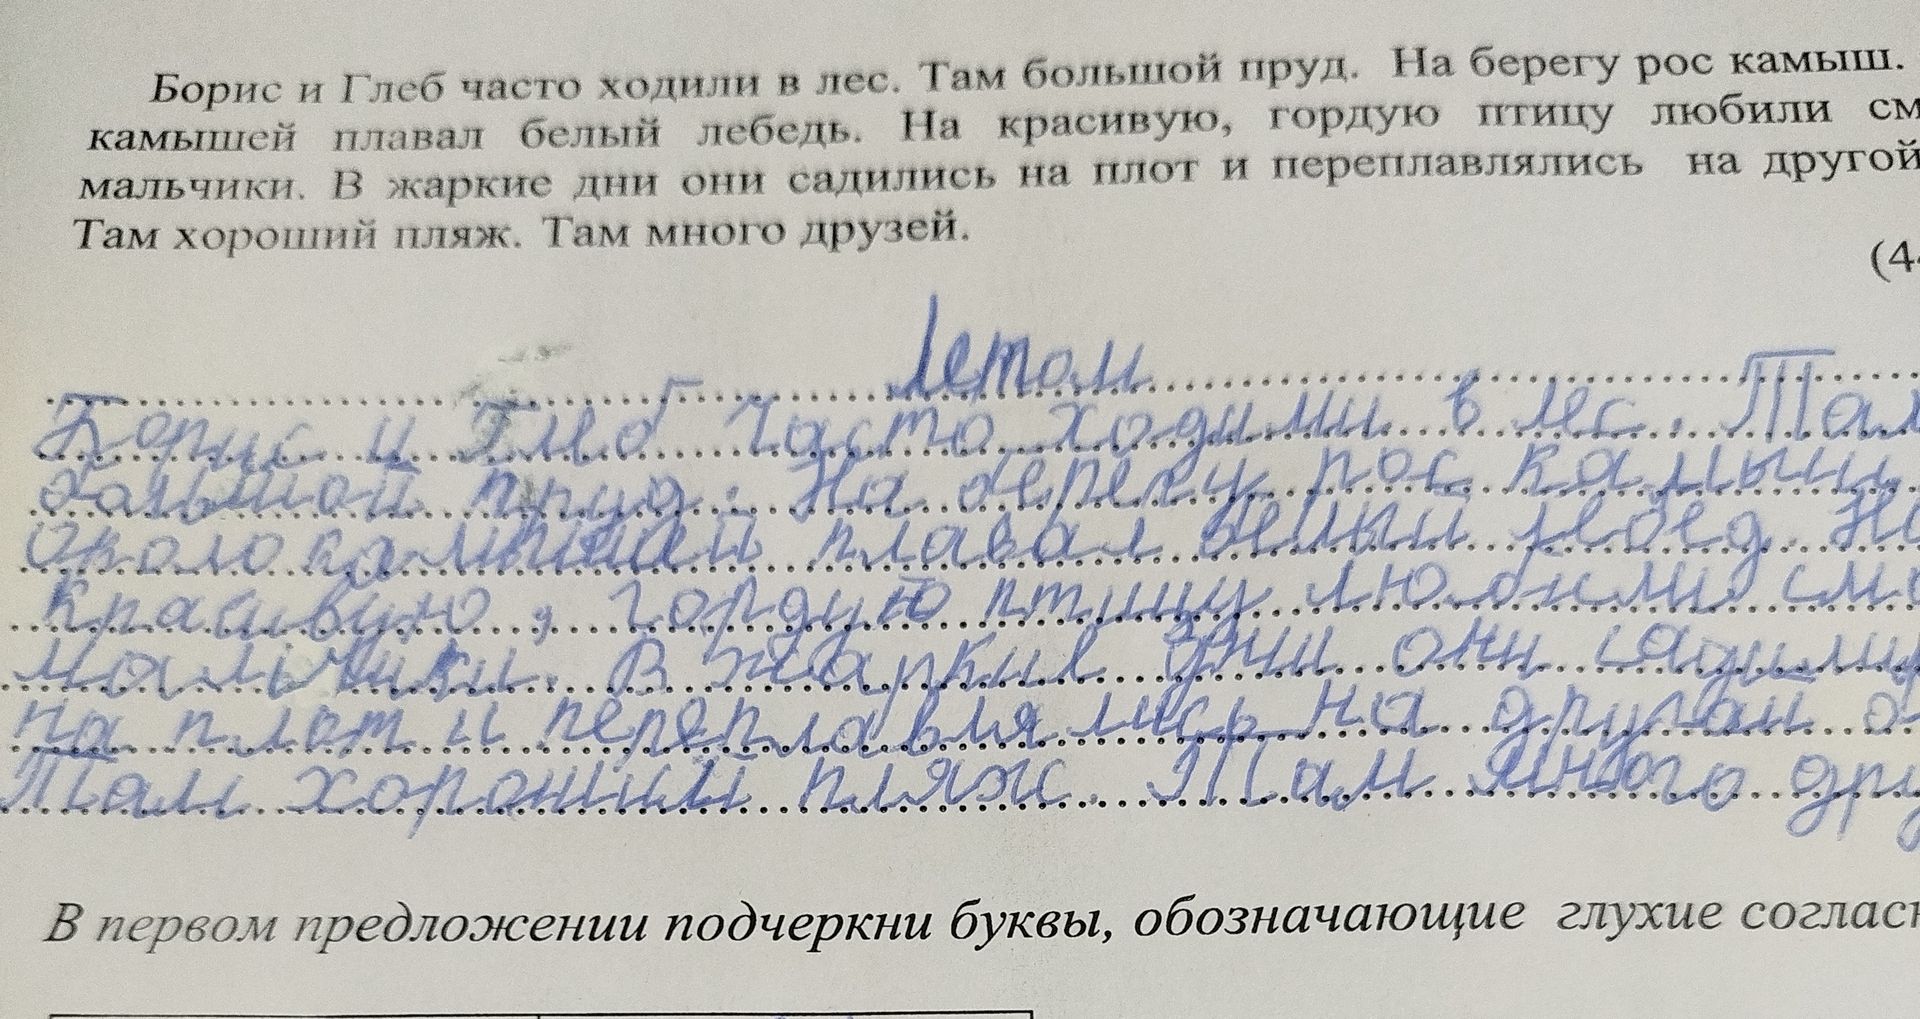 Борис и Глеб часто ходили в лес. Там большой пруд. На берегу рос камыш.
камышей плавал белый лебедь. На красивую, гордую птицу любили см
мальчики. В жаркие дни они садились на плот и переплавлялись на другой
Там хороший пляж. Там много друзей.
(44
Летом
Борис и Глеб часто ходили в лес. Там
большой пруд. На берегу рос камыш.
Около камышей плавал белый лебед. На
красивую, гордую птицу любили смо
мальчики. В жаркие дни они садили
на плот и переплавлялись на другой
Там хороший пляж. Там много дру
В первом предложении подчеркни буквы, обозначающие глухие соглас